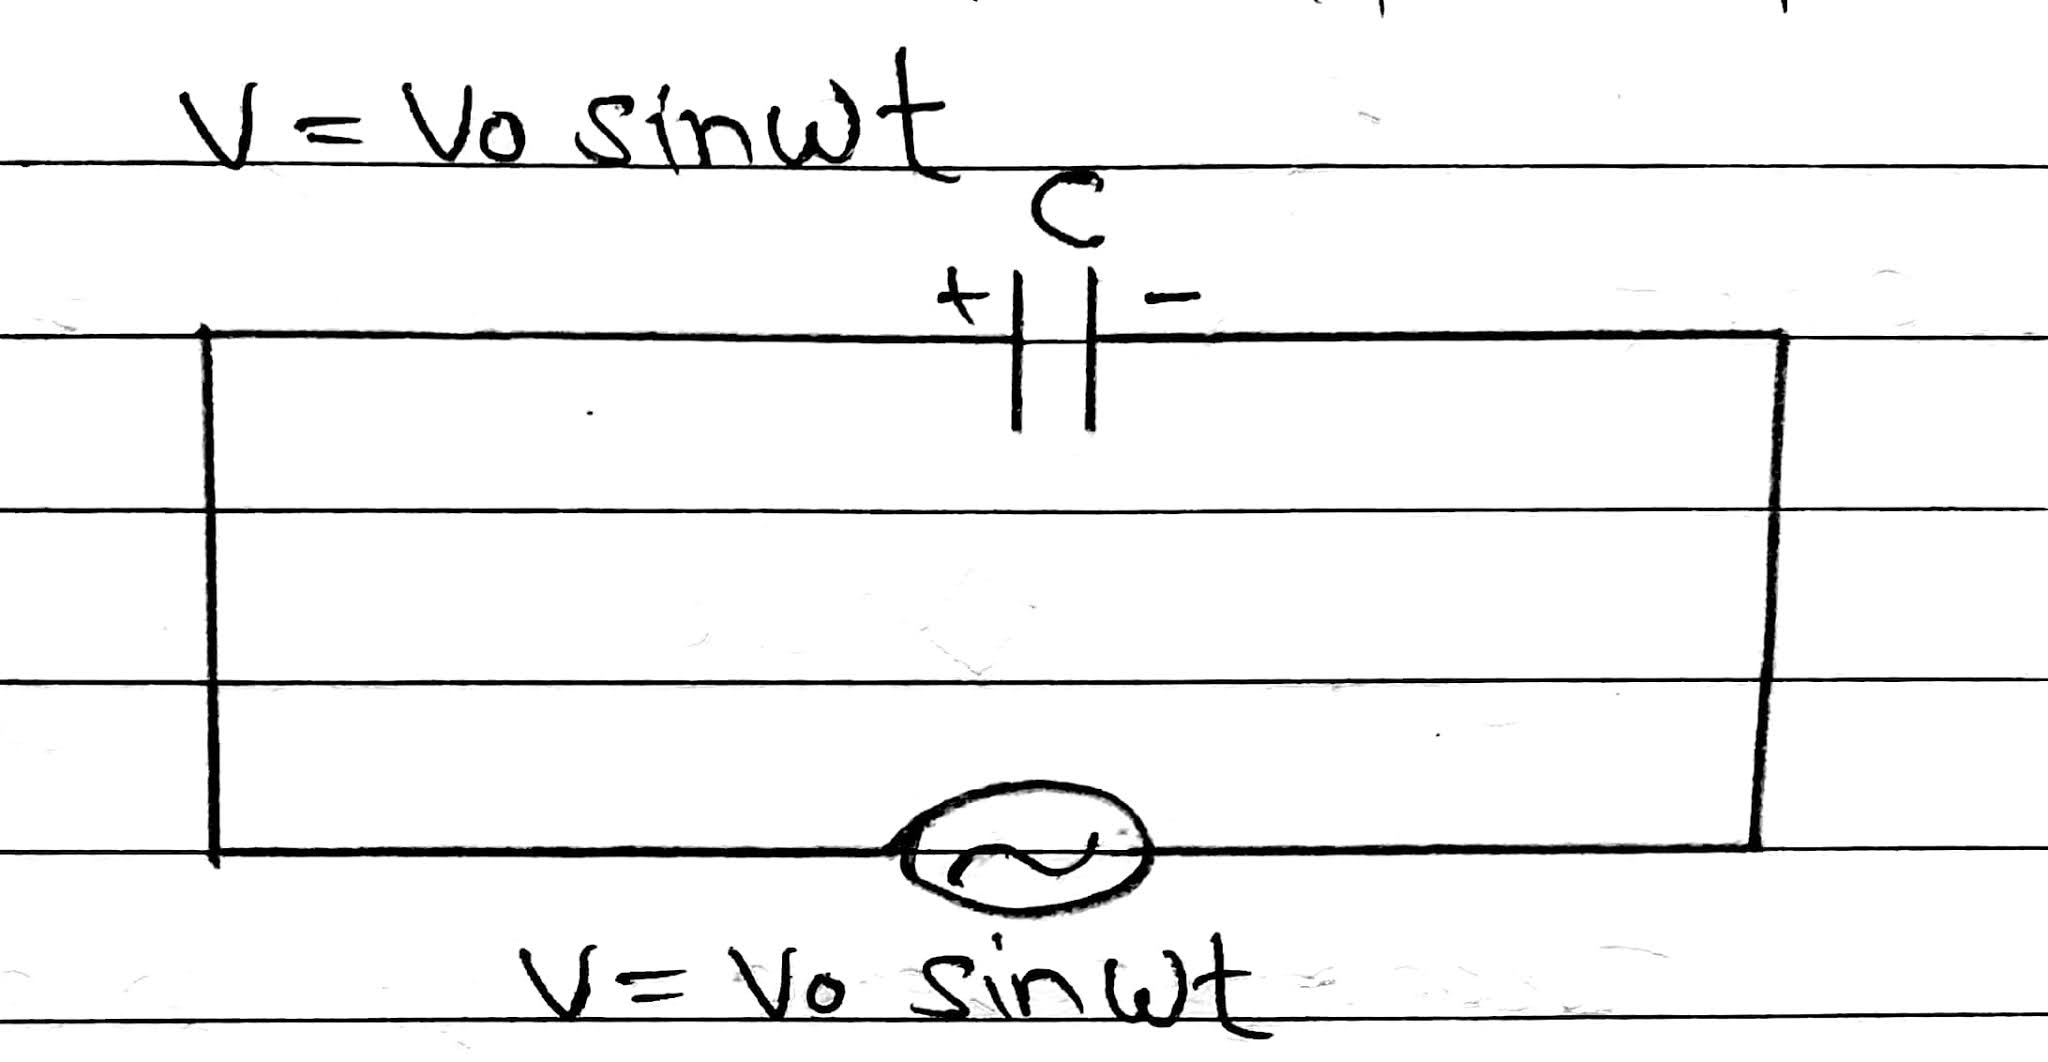 V = Vo sinωt
C
+ -
V = Vo sinωt